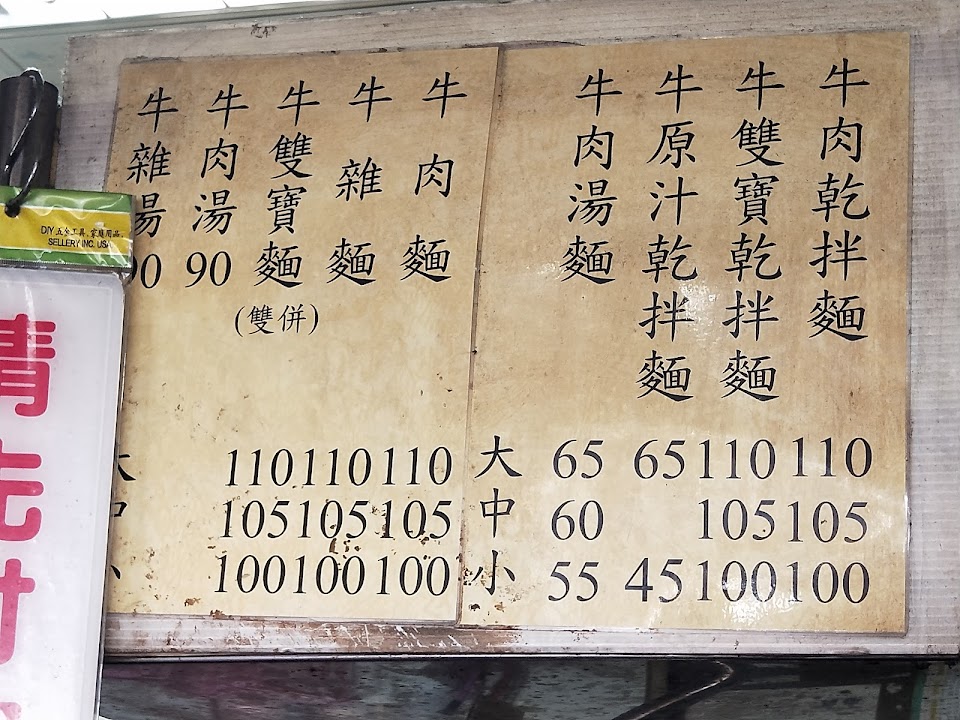 牛肉乾拌麵
牛雙寶乾拌麵
牛原汁乾拌麵
牛肉湯麵
大 65 65 110 110
中 60 105 105
小 55 45 100 100
牛肉麵
牛雜麵
牛雙寶麵
(雙併)
牛肉湯 90
牛雜湯 90
大 110 110 110
中 105 105 105
小 100 100 100
DIY 五金工具.家庭用品.
SELLERY INC. USA
請先付